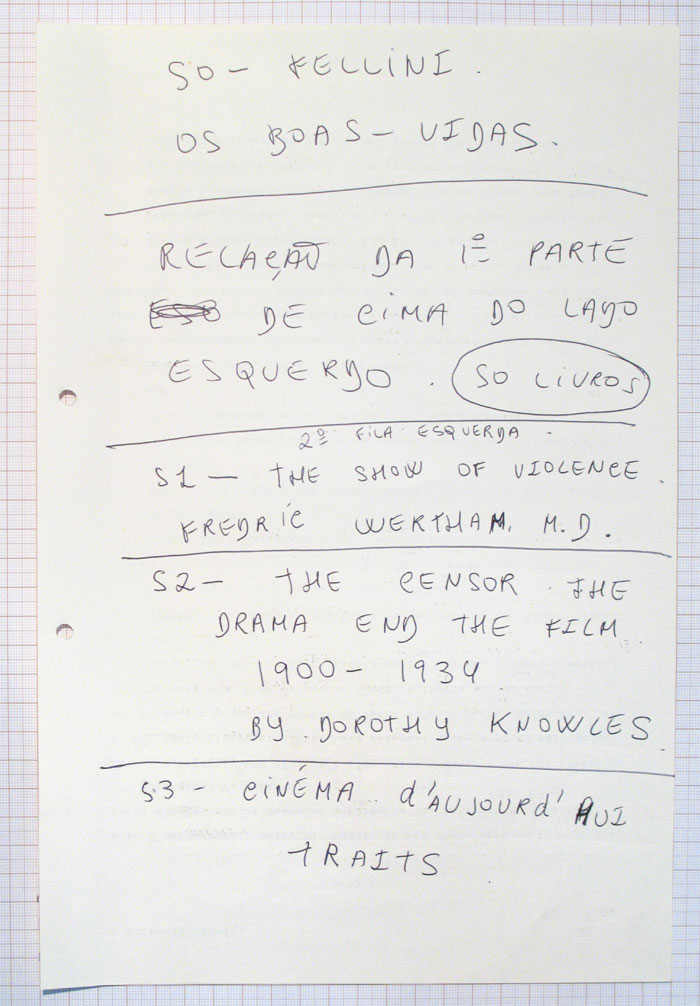 50 - FELLINI.
OS BOAS - VIDAS.
RELAÇAÕ DA 1º PARTE
DE CIMA DO LADO
ESQUERDO. SO LIVROS
2º FILA ESQUERDA -
51 - THE SHOW OF VIOLENCE.
FREDRIC WERTHAM, M.D.
52 - THE CENSOR. THE
DRAMA END THE FILM
1900 - 1934
BY DOROTHY KNOWLES
53 - CINÉMA d'AUJOURd'HUI
TRAITS